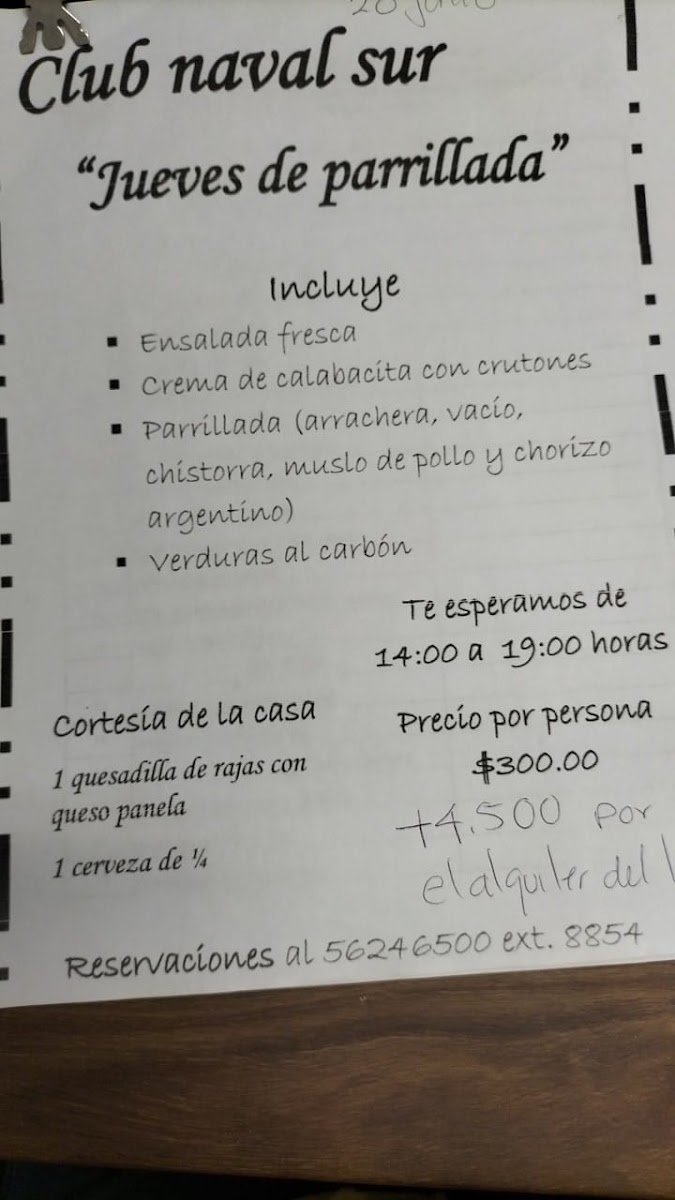 Club naval sur
“Jueves de parrillada”
Incluye
▪ Ensalada fresca
▪ Crema de calabacita con crutones
▪ Parrillada (arrachera, vacío,
chistorra, muslo de pollo y chorizo
argentino)
▪ Verduras al carbón
Te esperamos de
14:00 a 19:00 horas
Cortesía de la casa
1 quesadilla de rajas con
queso panela
1 cerveza de ¼
Precio por persona
$300.00
+4.500 por
el alquiler del
Reservaciones al 56246500 ext. 8854